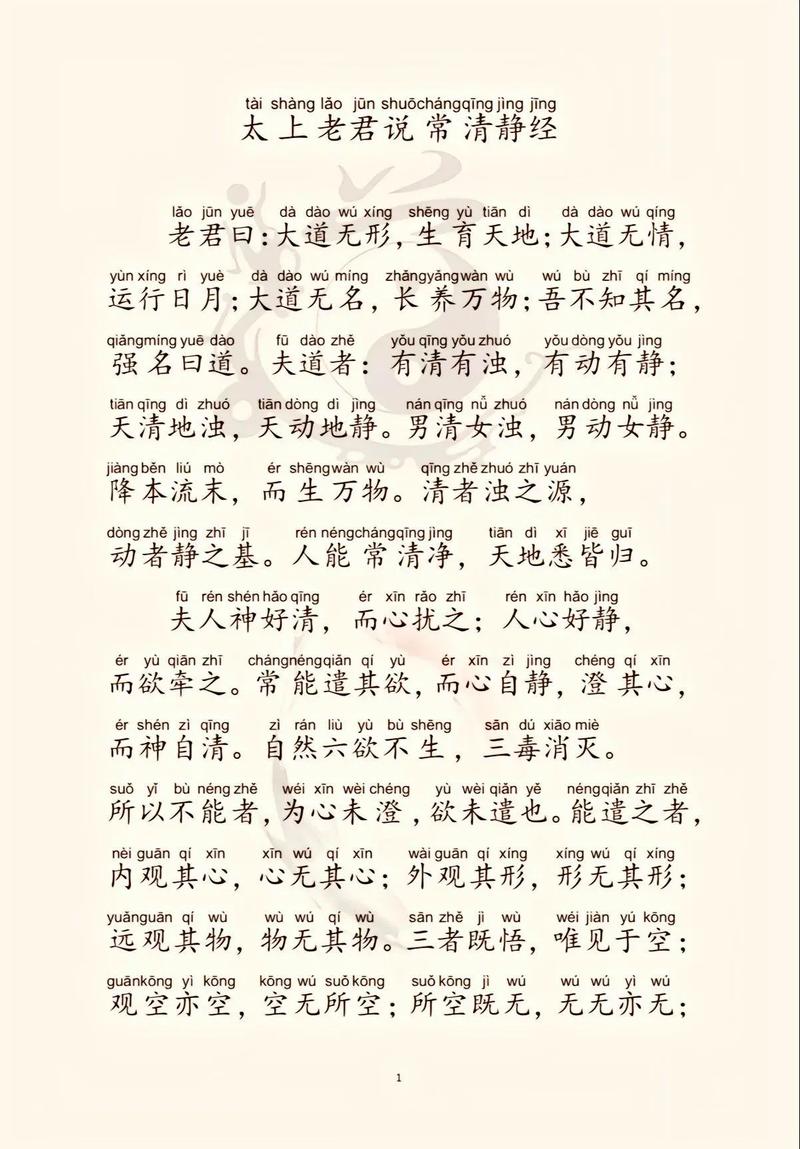 tài shàng lǎo jūn shuōchángqīng jìng jīng
太上老君说常清静经
lǎo jūn yuē dà dào wú xíng shēng yù tiān dì dà dào wú qíng
老君曰:大道无形,生育天地;大道无情,
yùn xíng rì yuè dà dào wú míng zhǎngyǎngwàn wù wú bù zhī qí míng
运行日月;大道无名,长养万物;吾不知其名,
qiǎngmíng yuē dào fū dào zhě yǒu qīng yǒu zhuó yǒu dòng yǒu jìng
强名曰道。夫道者:有清有浊,有动有静;
tiān qīng dì zhuó tiān dòng dì jìng nán qīng nǚ zhuó nán dòng nǚ jìng
天清地浊,天动地静。男清女浊,男动女静。
jiàng běn liú mò ér shēngwàn wù qīng zhě zhuó zhī yuán
降本流末,而生万物。清者浊之源,
dòng zhě jìng zhī jī rén néngchángqīng jìng tiān dì xī jiē guī
动者静之基。人能常清净,天地悉皆归。
fū rén shén hǎo qīng ér xīn rǎo zhī rén xīn hǎo jìng
夫人神好清,而心扰之;人心好静,
ér yù qiān zhī chángnéngqiǎn qí yù ér xīn zì jìng chéng qí xīn
而欲牵之。常能遣其欲,而心自静,澄其心,
ér shén zì qīng zì rán liù yù bù shēng sān dú xiāo miè
而神自清。自然六欲不生,三毒消灭。
suǒ yǐ bù néng zhě wéi xīn wèi chéng yù wèi qiǎn yě néngqiǎn zhī zhě
所以不能者,为心未澄,欲未遣也。能遣之者,
nèi guān qí xīn xīn wú qí xīn wài guān qí xíng xíng wú qí xíng
内观其心,心无其心;外观其形,形无其形;
yuǎnguān qí wù wù wú qí wù sān zhě jì wù wéi jiàn yú kōng
远观其物,物无其物。三者既悟,唯见于空;
guānkōng yì kōng kōng wú suǒ kōng suǒ kōng jì wú wú wú yì wú
观空亦空,空无所空;所空既无,无无亦无;
1